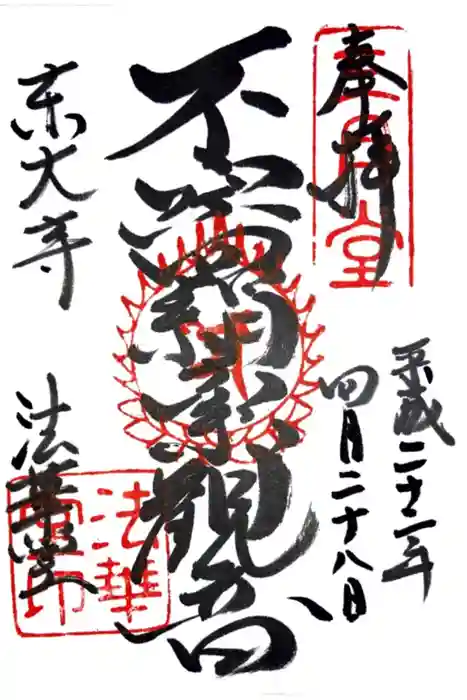 奉拝
三月堂
平成二十二年
四月二十八日
不空羂索観音
東大寺
法華堂
法華
堂印